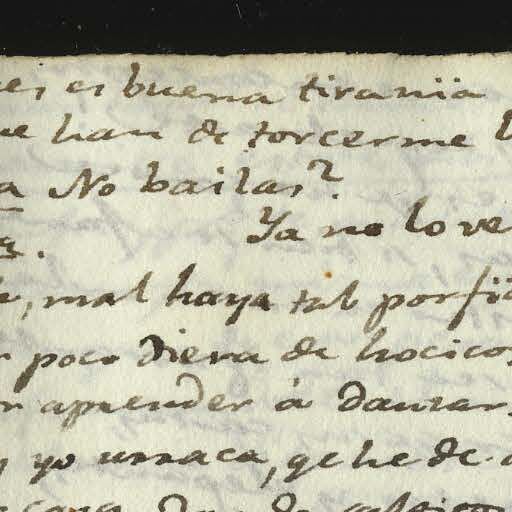 es es buena tirania
ue han de torcerme
a No bailas?
Ya no lo ve
, mal haya tal porfia
poco diera de hocicos
r aprender à danzar,
yo urraca, qe he de